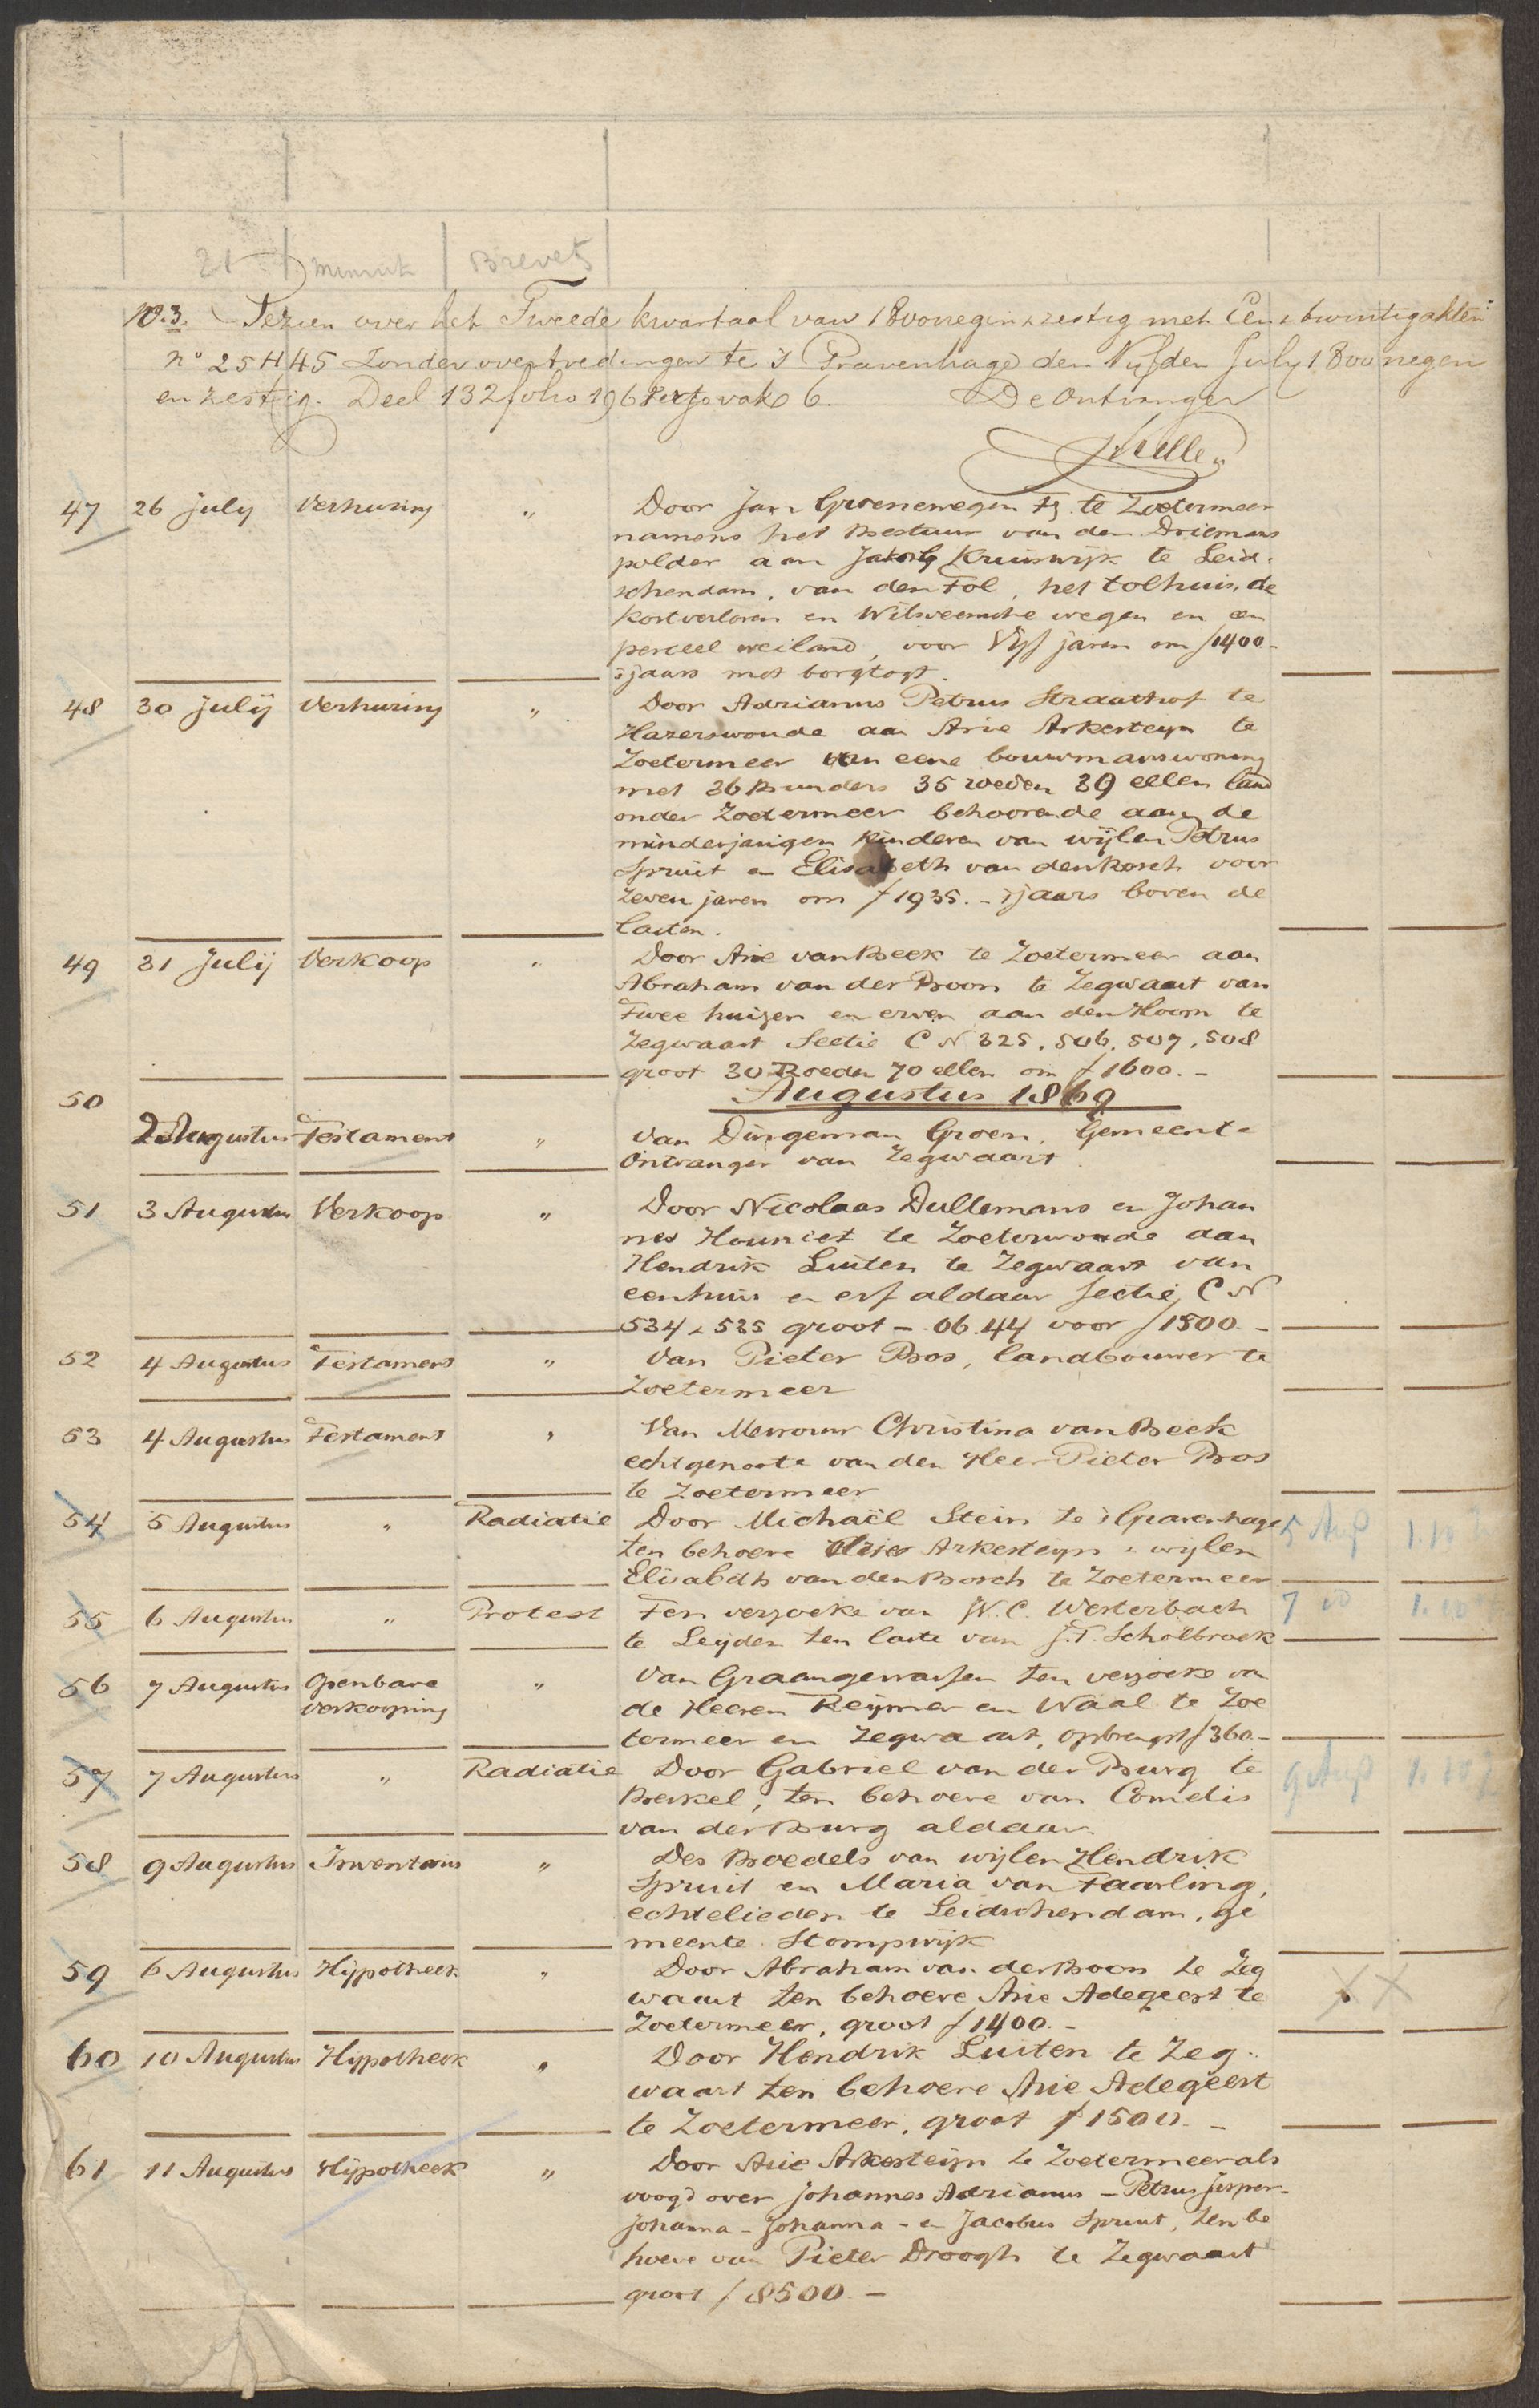 21 minuut Brevet
No. 3. Gezien over het Tweede kwartaal van 1800 negen & zestig met Een & twintig akten
no 25 H 45 Zonder overtredingen te 's Gravenhage den Vijfden July 1800 negen
en zestig. Deel 132 folio 196 verso vak 6. De Ontvanger
47 26 July Verhuring " Door Jan Groenewegen Tz. te Zoetermeer
namens het Bestuur van den Driemans
polder aan Jakob Kruiswijk te Leid-
schendam, van den Tol, het tolhuis, de
Kostverloren en Wilsveensche wegen en een
perceel weiland, voor Vijf jaren om f 1400.-
's jaars met borgtogt.
48 30 Julij Verhuring " Door Adrianus Petrus Straathof te
Hazerswoude aan Arie Arkesteyn te
Zoetermeer van eene bouwmanswoning
met 36 Bunders 35 roeden 39 ellen land
onder Zoetermeer behoorende aan de
minderjarigen kinderen van wijlen Petrus
Spruit en Elisabeth van den Bosch voor
zeven jaren om f 1935.- 's jaars boven de
lasten.
49 31 Julij Verkoop " Door Arie van Beek te Zoetermeer aan
Abraham van der Boon te Zegwaart van
Twee huizen en erven aan den Hoorn te
Zegwaart Sectie C N 325, 506, 507, 508
groot 30 Roeden 70 ellen om f 1600.-
50 Augustus 1869
2 Augustus Testament " Van Dingeman Groen, Gemeente
Ontvanger van Zegwaart
51 3 Augustus Verkoop " Door Nicolaas Dullemans en Johan
nes Houniet te Zoeterwoude aan
Hendrik Luiten te Zegwaart van
een huis en erf aldaar Sectie C N
534 & 535 groot - 06.44 voor f 1500.-
52 4 Augustus Testament " Van Pieter Bos, landbouwer te
Zoetermeer
53 4 Augustus Testament " Van Mevrouw Christina van Beek
echtgenoote van den Heer Pieter Bos
te Zoetermeer
54 5 Augustus " Radiatie Door Michaël Stein te 's Gravenhage 5 Aug 1.10
ten behoeve Arie Arkesteijn & wijlen
Elisabeth van den Bosch te Zoetermeer
55 6 Augustus " Protest Ten verzoeke van W. C. Westerbach 7
te Leijden ten laste van J. T. Scholbroek
56 7 Augustus Openbare " Van Graangewassen ten verzoeke van
verkooping de Heeren Reijmer en Waal te Zoe
termeer en Zegwaart, opbrengst f 360.-
57 7 Augustus " Radiatie Door Gabriel van der Burg te 9 Aug 1.10
Berkel, ten behoeve van Cornelis
van der Burg aldaar.
58 9 Augustus Inventaris " Des Boedels van wijlen Hendrik
Spruit en Maria van Taarling,
echtelieden te Leidschendam, ge
meente Stompwijk
59 6 Augustus Hijpotheek " Door Abraham van der Boon te Zeg
waart ten behoeve Arie Adegeest te X X
Zoetermeer, groot f 1400.-
60 10 Augustus Hypotheek " Door Hendrik Luiten te Zeg-
waart ten behoeve Arie Adegeest
te Zoetermeer, groot f 1500.-
61 11 Augustus Hijpotheek " Door Arie Arkesteijn te Zoetermeer als
voogd over Johannes Adrianus - Petrus Jesper-
Johanna - Johanna - en Jacobus Spruit, ten be
hoeve van Pieter Droogh te Zegwaart
groot f 8500.-